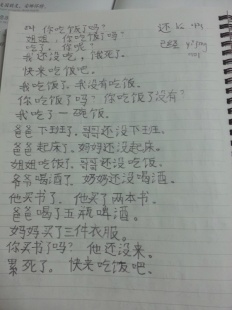 叫 你吃饭了吗？ 还 hái
姐姐，你吃饭了吗？
吃了，你呢？ 已经
我还没吃。饿死了。
快来吃饭吧。
我吃饭了，我没有吃饭。
你吃饭了吗？你吃饭了没有？
我吃了一碗饭。
爸爸下班了，哥哥还没下班。
爸爸起床了，妈妈还没起床。
姐姐吃饭了，哥哥还没吃饭。
爷爷喝酒了，奶奶还没喝酒。
他买书了，他买了两本书。
爸爸喝了五瓶啤酒。
妈妈买了三件衣服。
你买书了吗？他还没来。
累死了。快来吃饭吧。